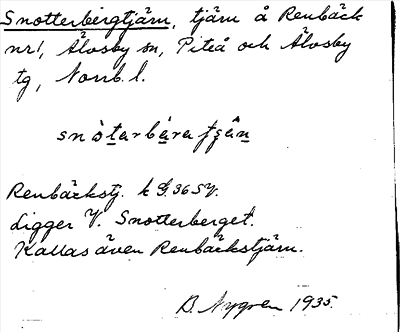 Snotterbergtjärn, tjärn å Renbäck
nr1, Älvsby sn, Piteå och Älvsby
tg, Norrb. l.
Renbäckstj. k G. 36 SV.
Ligger V. Snotterberget.
Kallas även Renbäckstjärn.
B. Nygren 1935.